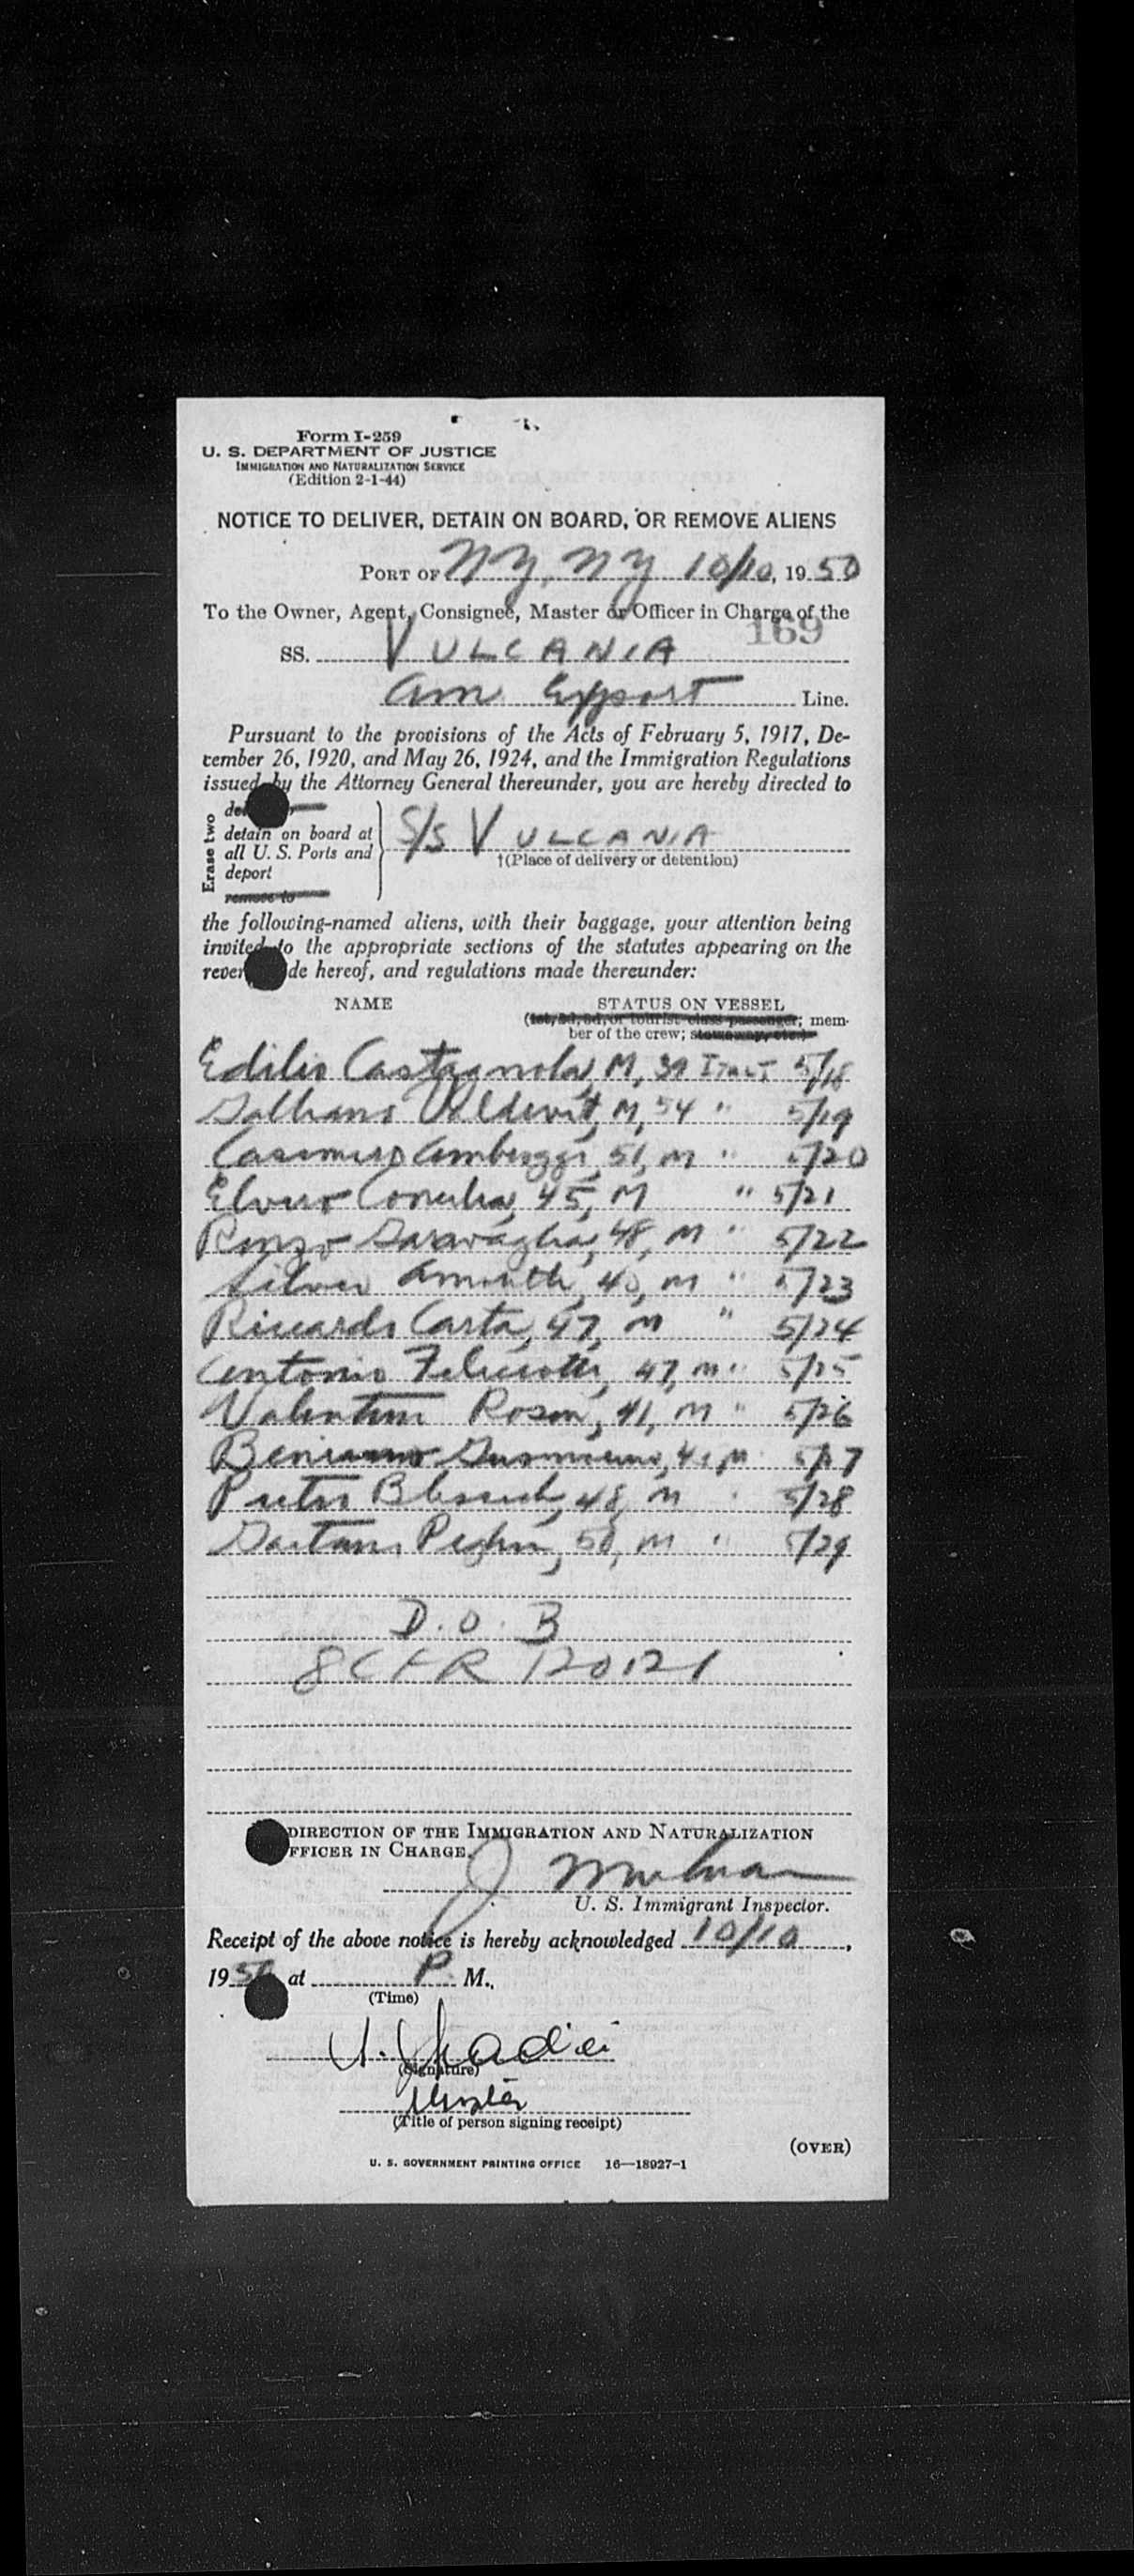 Form I-259
U. S. DEPARTMENT OF JUSTICE
IMMIGRATION AND NATURALIZATION SERVICE
(Edition 2-1-44)
NOTICE TO DELIVER, DETAIN ON BOARD, OR REMOVE ALIENS
PORT OF NY, NY 10/10, 1950
To the Owner, Agent, Consignee, Master or Officer in Charge of the
169
SS. VULCANIA
Am Export Line.
Pursuant to the provisions of the Acts of February 5, 1917, De-
cember 26, 1920, and May 26, 1924, and the Immigration Regulations
issued by the Attorney General thereunder, you are hereby directed to
Erase two
detain on board at
all U. S. Ports and
deport
remove to
S/S VULCANIA
†(Place of delivery or detention)
the following-named aliens, with their baggage, your attention being
invited to the appropriate sections of the statutes appearing on the
rever de hereof, and regulations made thereunder:
NAME STATUS ON VESSEL
(1st, 2d, 3d, or tourist class passenger; mem-
ber of the crew; stowaway, etc.)
Edilio Castagnola, M, 39 5/18
Valdevit, M, 54 " 5/19
Casimiro 51, M " 5/20
45, M " 5/21
Renzo Garavaglia, 48, M " 5/22
40, M " 5/23
Riccardo Carta, 47, M " 5/24
Antonio Feliciotti, 47, M " 5/25
Valentini Rosin, 41, M " 5/26
5/27
48, M 5/28
Gaetano 50, M " 5/29
D.O.B
8 CFR 120.121
DIRECTION OF THE IMMIGRATION AND NATURALIZATION
FFICER IN CHARGE.
J
U. S. Immigrant Inspector.
Receipt of the above notice is hereby acknowledged 10/10,
1950 at P. M.,
(Time)
(Signature)
Master
(Title of person signing receipt)
(OVER)
U. S. GOVERNMENT PRINTING OFFICE 16—18927-1